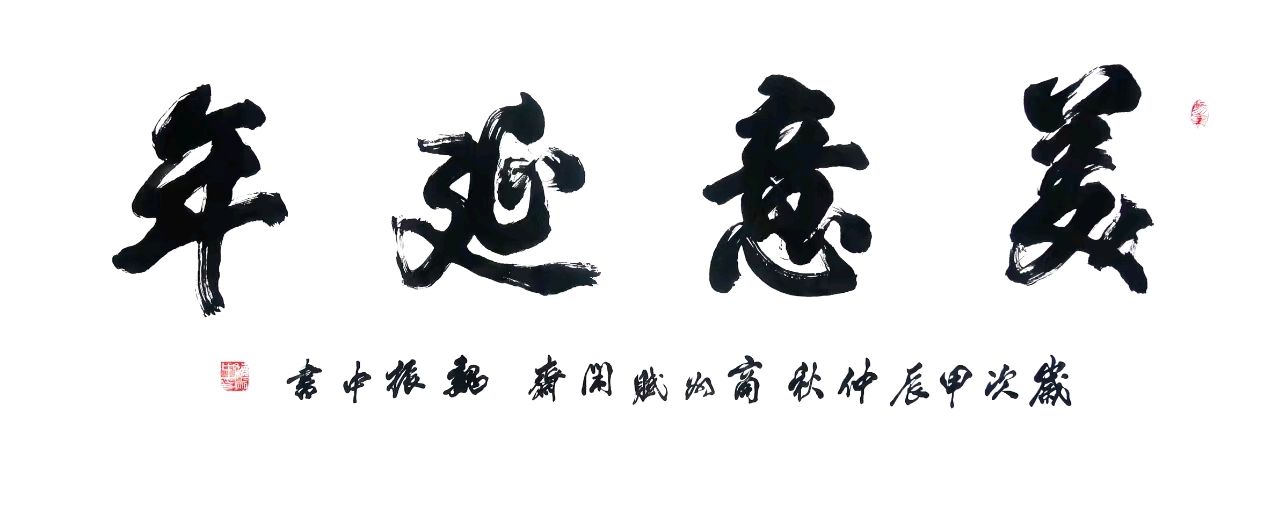 美意延年
歲次甲辰仲秋商於賦闲齋 魏振中書